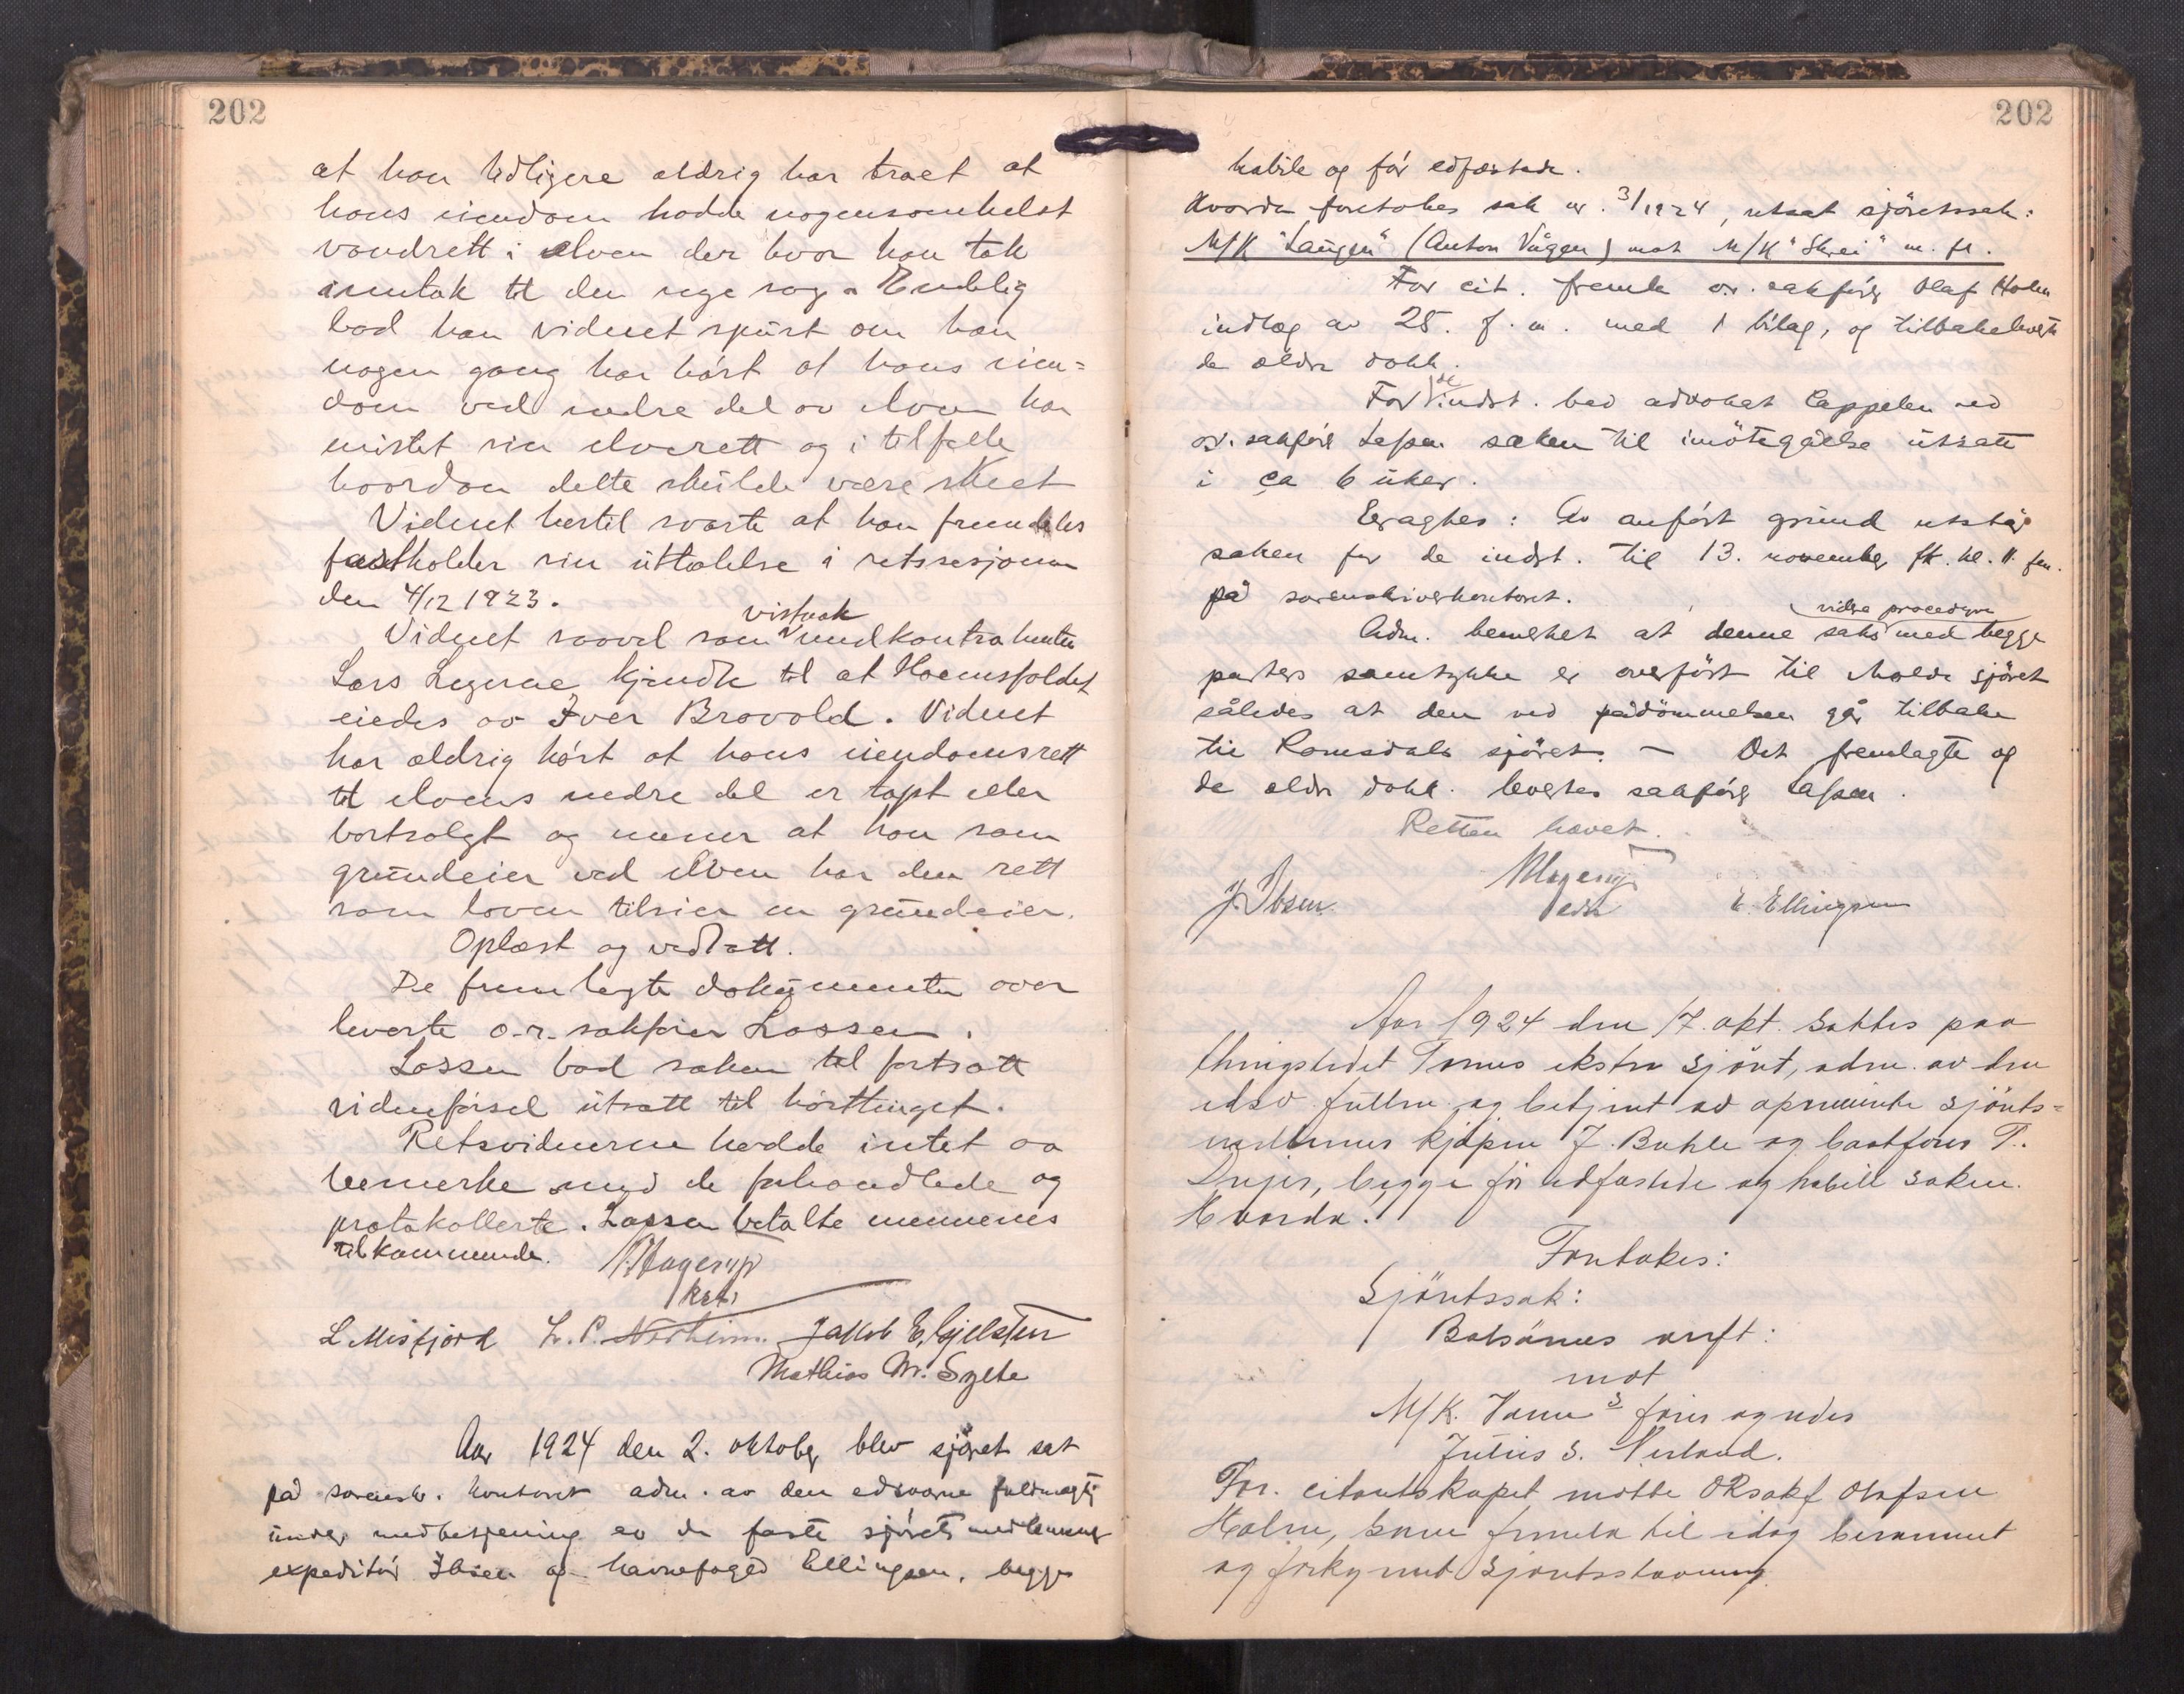 202
at han tidligere aldrig har traet at
hans eiendom hadde nogensomhelst
vandrett i elven der hvor han tok
inntak til den nye sag. Endelig
bad han vidnet spurt om han
nogen gang har hørt at hans eien=
dom ved nedre del av elven har
mistet sin elverett og i tilfelle
hvordan dette skulde være skeet
Vidnet hertil svarte at han fremdeles
fastholder sin uttalelse i retssesjonen
den 4/12 1923.
vistnok
Vidnet saavel som medkontrahenten
Lars Legernæ kjendte til at Hoemsfoldet
eiedes av Iver Brovold. Vidnet
har aldrig hørt at hans eiendomsrett
til elvens nedre del er tapt eller
bortsolgt og mener at han som
grundeier ved elven har den rett
som loven tilsier en grundeier.
Oplæst og vedtatt.
De fremlagte dokumenter over
leverte o.r. sakfører Lassen.
Lassen bad saken til fortsatt
vidneførsel utsatt til høsttinget.
Retsvidnerne hadde intet aa
bemerke med de forhandlede og
protokollerte. Lassen betalte mennenes
tilkommende. Hagerup
kst.
L Misfjord L. P. Nerheim. Jakob E. Gjelsten
Mathias M. Sylte
Aar 1924 den 2. oktober blev sjøret sat
på sorenskr. kontoret adm. av den edsvorne fuldmægtig
under medbetjening av de faste sjøretsmedlemmer
expeditør Ibsen og havnefoged Ellingsen, begge
202
habile og før edfæstede.
Hvorda foretokes sak nr. 3/1924, utsat sjøretssak:
M/K "Laugen" (Anton Vågen) mot M/K "Skrei" m. fl.
For cit. fremla o.r. sakfører Olaf Holm
indlæg av 25. f. m. med 1 bilag, og tilbakeleverte
de ældre dokk.
de
For indst. bad advokat Cappelen ved
o.r. sakfører Lassen saken til imøtegåelse utsatt
i ca 6 uker.
Eragtes: Av anført grund utstår
saken for de indst. til 13. november fk. kl. 11 fm.
på sorenskriverkontoret.
videre procedyre
Adm. bemerket at denne saks med begge
parters samtykke er overført til Molde sjøret
således at den ved pådømmelsen går tilbake
til Romsdals sjøret. — Det fremlagte og
de ældre dokk. leveres sakfører Lassen.
Retten hævet.
Hagerup
J. Ibsen edsv E. Ellingsen
Aar 1924 den 17. okt. sattes paa
thingstedet Tornes ekstra sjøret, adm. av den
edsv. fullm. og betjent av opnævnte sjørets=
medlemmer kjøpm J. Buhle og baatfører P.
begge før edfæstede og habile i saken.
Hvorda.
Foretokes:
Sjøretssak:
Bolsønes verft:
mot
M/K. fører og reder
Julius S. Nerland.
For citantskapet møtte ORsakf Olafsen
Holm, som fremla til idag berammet
og forkynnt sjøretsstevning